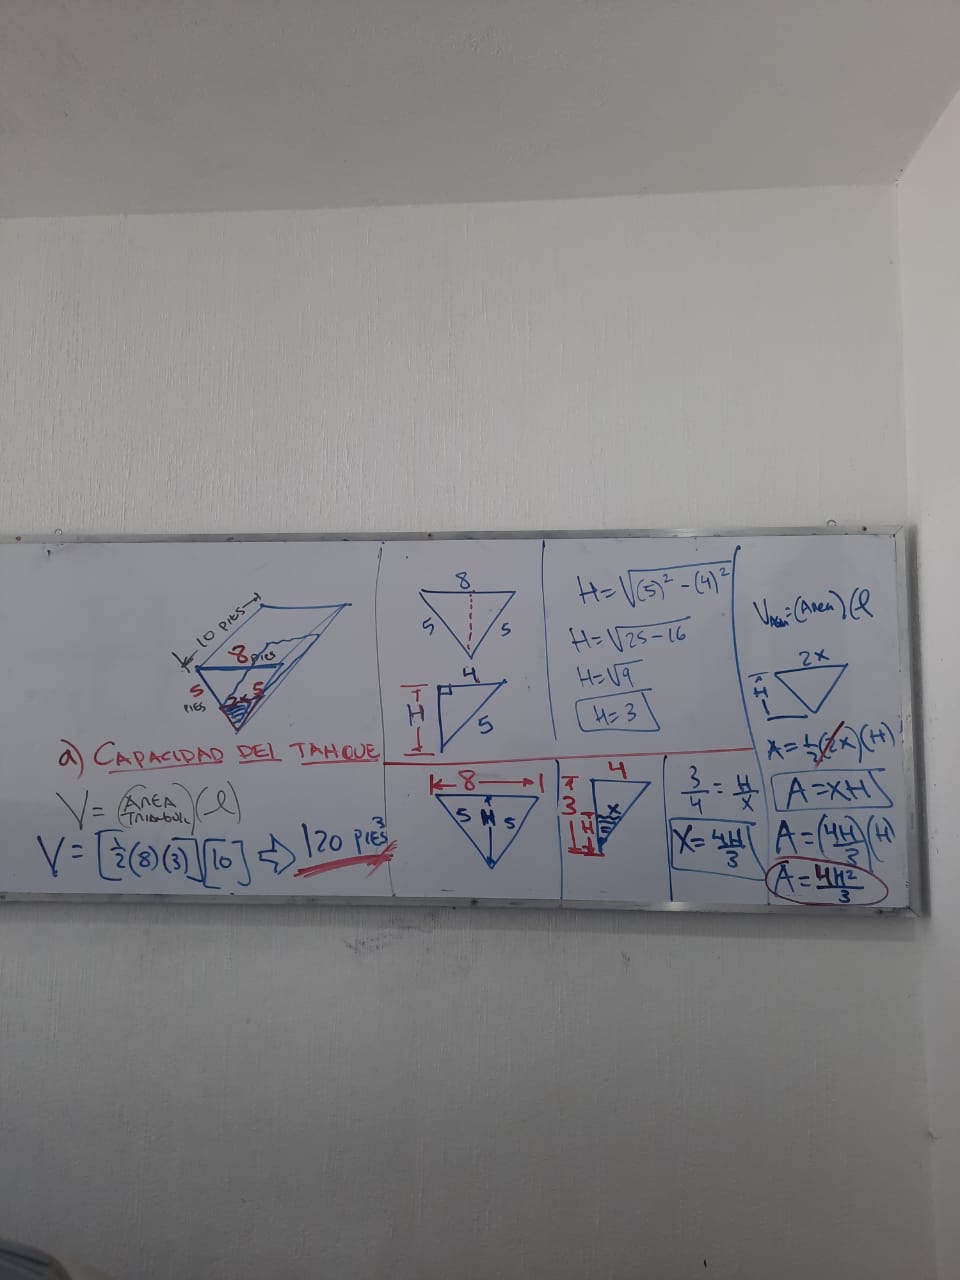 10 PIES
8 PIES
5
PIES
2X
5
a) CAPACIDAD DEL TANQUE
V = (AREA TRIANGULO)(l)
V = [1/2(8)(3)][10] ⇨ 120 PIES³
8
5
5
4
H
5
H = √(5)² - (4)²
H = √25 - 16
H = √9
H = 3
8
5
H
5
4
3
H
X
3/4 = H/X
X = 4H/3
= (AREA)(l
2X
H
A = 1/2(2X)(H)
A = XH
A = (4H/3)(H)
A = 4H²/3